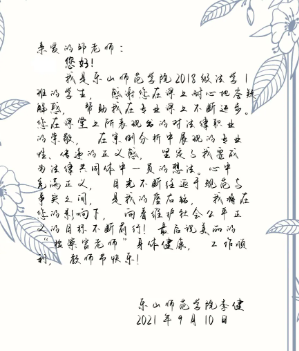 亲爱的邱老师：
您好！
我是乐山师范学院2018级法学1
班的学生，感谢您在课上耐心地答疑
解惑，帮助我在专业课上不断进步。
您在课堂上所表现出的对法律职业
的崇敬，在案例分析中展现的专业
性、传递的正义感，坚定了我成
为法律共同体中一员的想法。心中
充满正义，目光不断往返于规范与
事实之间，是我的座右铭，我将在
您的影响下，向着维护社会公平正
义的目标不断前行！最后祝美丽的
“检察官老师”身体健康，工作顺
利，教师节快乐！
乐山师范学院李健
2021年9月10日